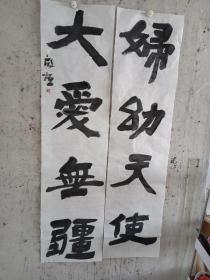 婦幼天使
大愛無疆